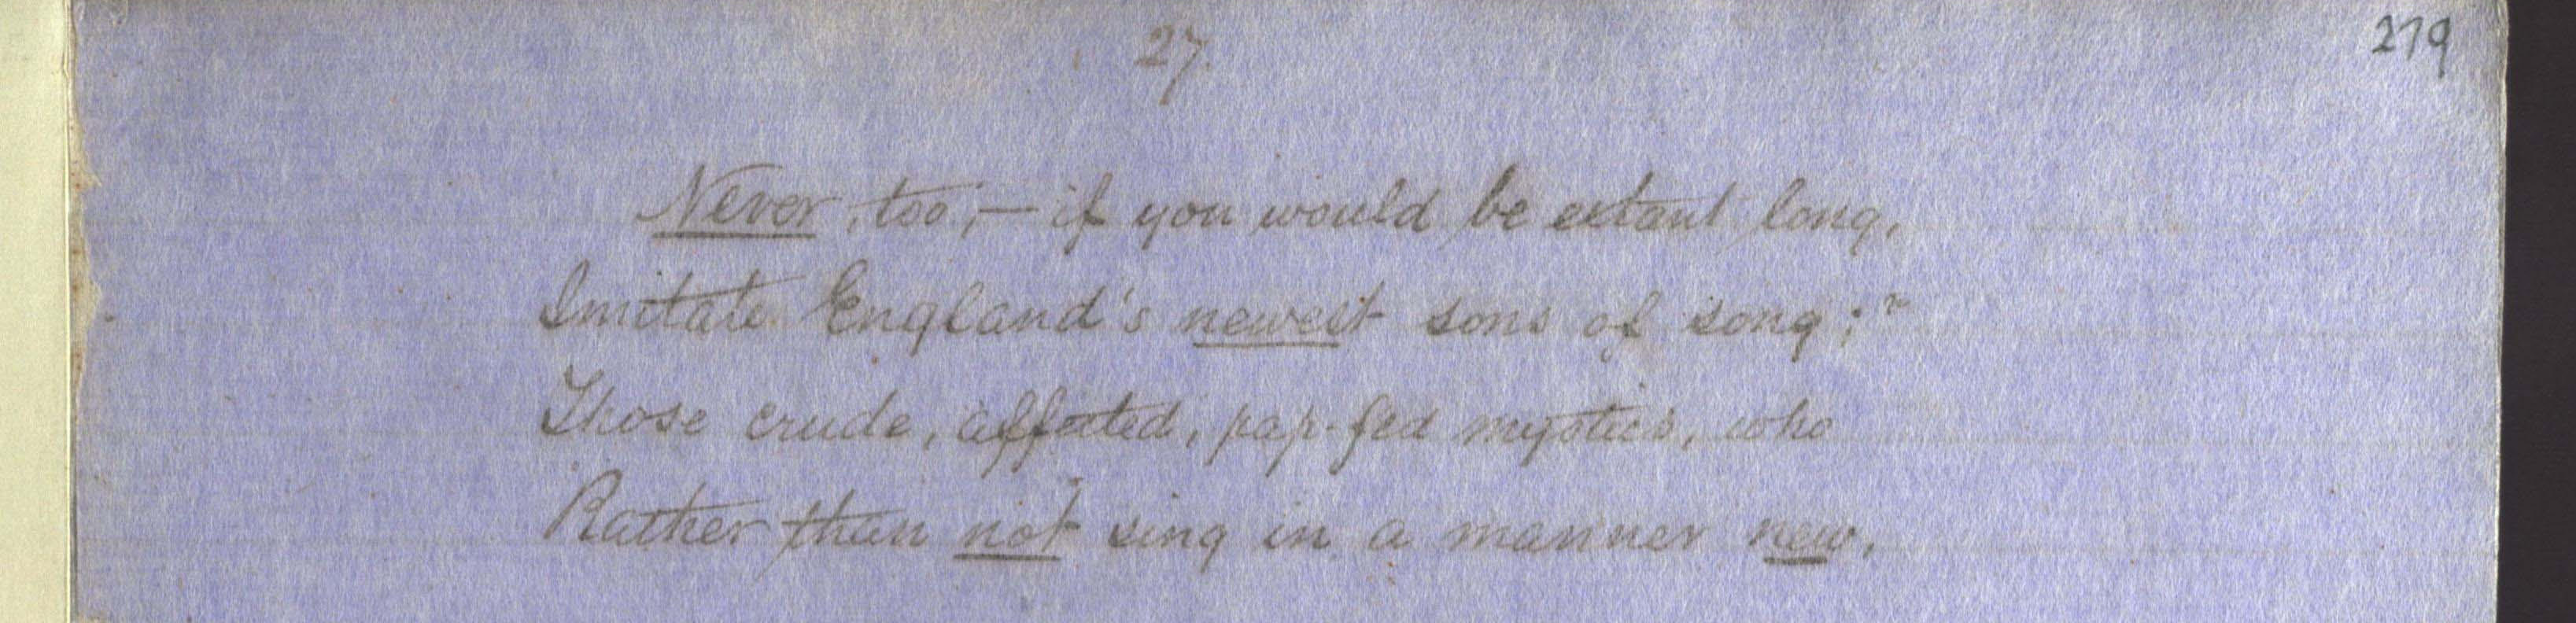 27.
279
Never, too,— if you would be extant long,
Imitate England's newest sons of song;~
Those crude, affected, pap-fed mystics, who
Rather than not sing in a manner new,